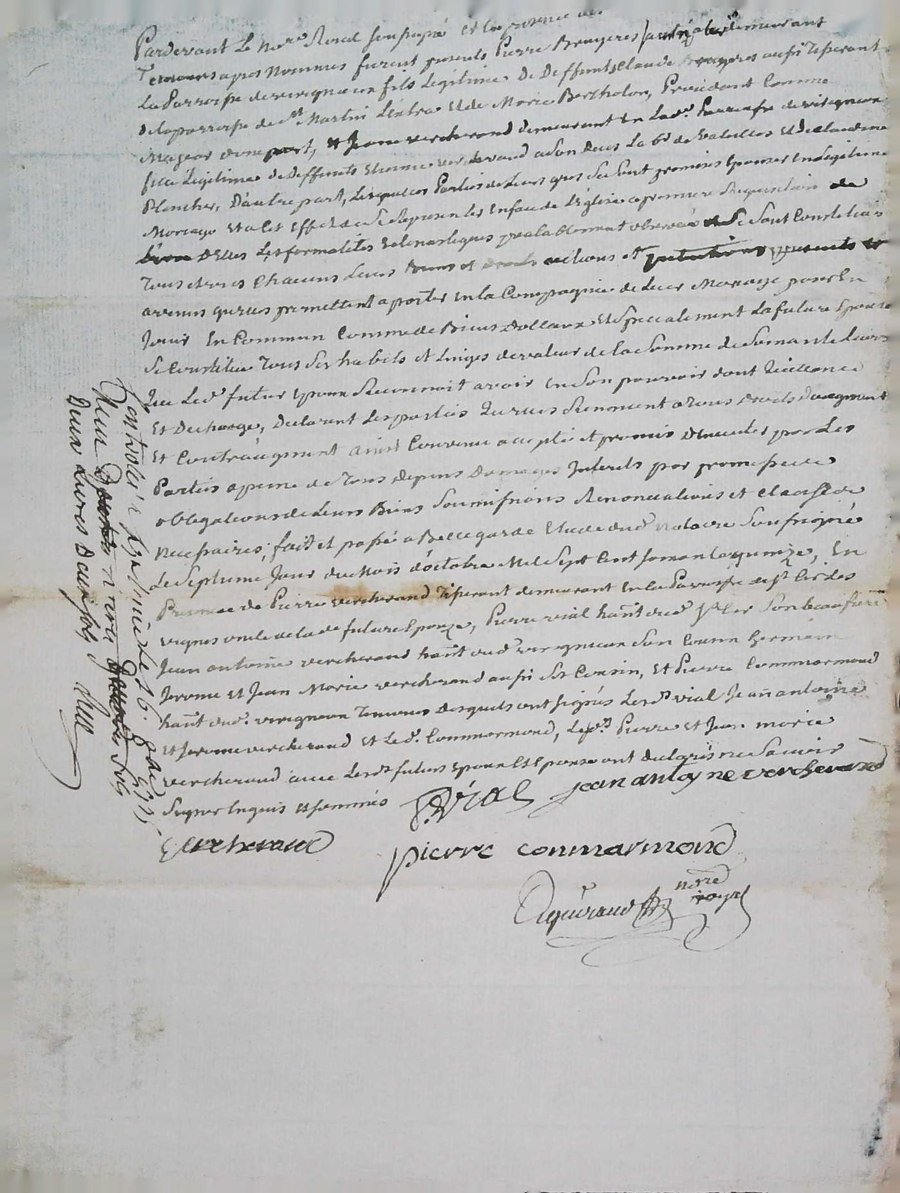 Pardevant Le no.re Royal soussigné et en presence des
Temoins apres nommés furent presents Pierre Bruyeres demeurant
La Parroisse de virigneux fils Legitime de Deffunt Claude Bruyeres aussi Tisserant
de la parroisse de St Martin Lestra et de Marie Bertholon, Procédant Comme
Majeur d'une part, et Jeane vercherand demeurant en Lad. Parroisse de virigneux
fille Legitime de Deffunts Etienne vercherand a son deces La.b.r de Valeilles et de Claudine
Plancher, D'autre part, Lesquelles Parties de Leurs gres se sont promises Epouser En Legitime
Mariage et a cet Effet de se Representer En face de L'Eglise a premiere Requisition de
Lune Delles Les formalités Eclesiastiques prealablement observées et se sont Constitués
Tous et uns Chacuns Leurs Biens et droits actions et pretentions presents et
avenir qu'ils promettent aporter En La Compagnie de Leur Mariage pour En
Jouir En Commun Comme de Biens Dotaux Et Specialement La future Epouse
Se Constitue Tous Ses habits et Linges de valeur de la Somme de Soixante Livres
Que Led. futur Epoux Reconnoit avoir En Son pouvoir dont Quittance
Et Decharge, Declarant Les parties Qu'elles Renoncent a Tous droits d'augment
Et Contraugment ainsi Convenu accepté et promis Executer par Les
Parties a peine de Tous depens Domages Interets par promesse de
obligations de Leurs Biens Soumissions Renonciations et clauses de
Necessaires; fait et passé a Bellegarde Etude dud. notaire Soussigné
Le Septieme Jour du Mois d'octobre Mil Sept Cent Soixante quinze, En
Presence de Pierre vercherand Tisserant demeurant En La Parroisse de St Cir Les
vignes oncle de la de future Epouze, Pierre vial habnt dud. St Cir Son beaufrere
Jean antoine vercherand habnt dud. virigneux Son Cousin Germain
Jerome et Jean Marie vercherand aussi Ses Cousin, Et Pierre Commarmond
habnt dud. virigneux Temoins desquels ont signés Lesd. vial Jean antoine
et Jerome vercherand Et Led. Commarmond, Lesd. Pierre et Jean marie
vercherand avec Lesd. futurs Epoux Et Epouse ont declarés ne Savoir
Signer Enquis et sommés
P. Vial jean antoyne verchevand
vercherand
pierre conmarmond
nore royal
Controllé
Deux Livres Deux sols